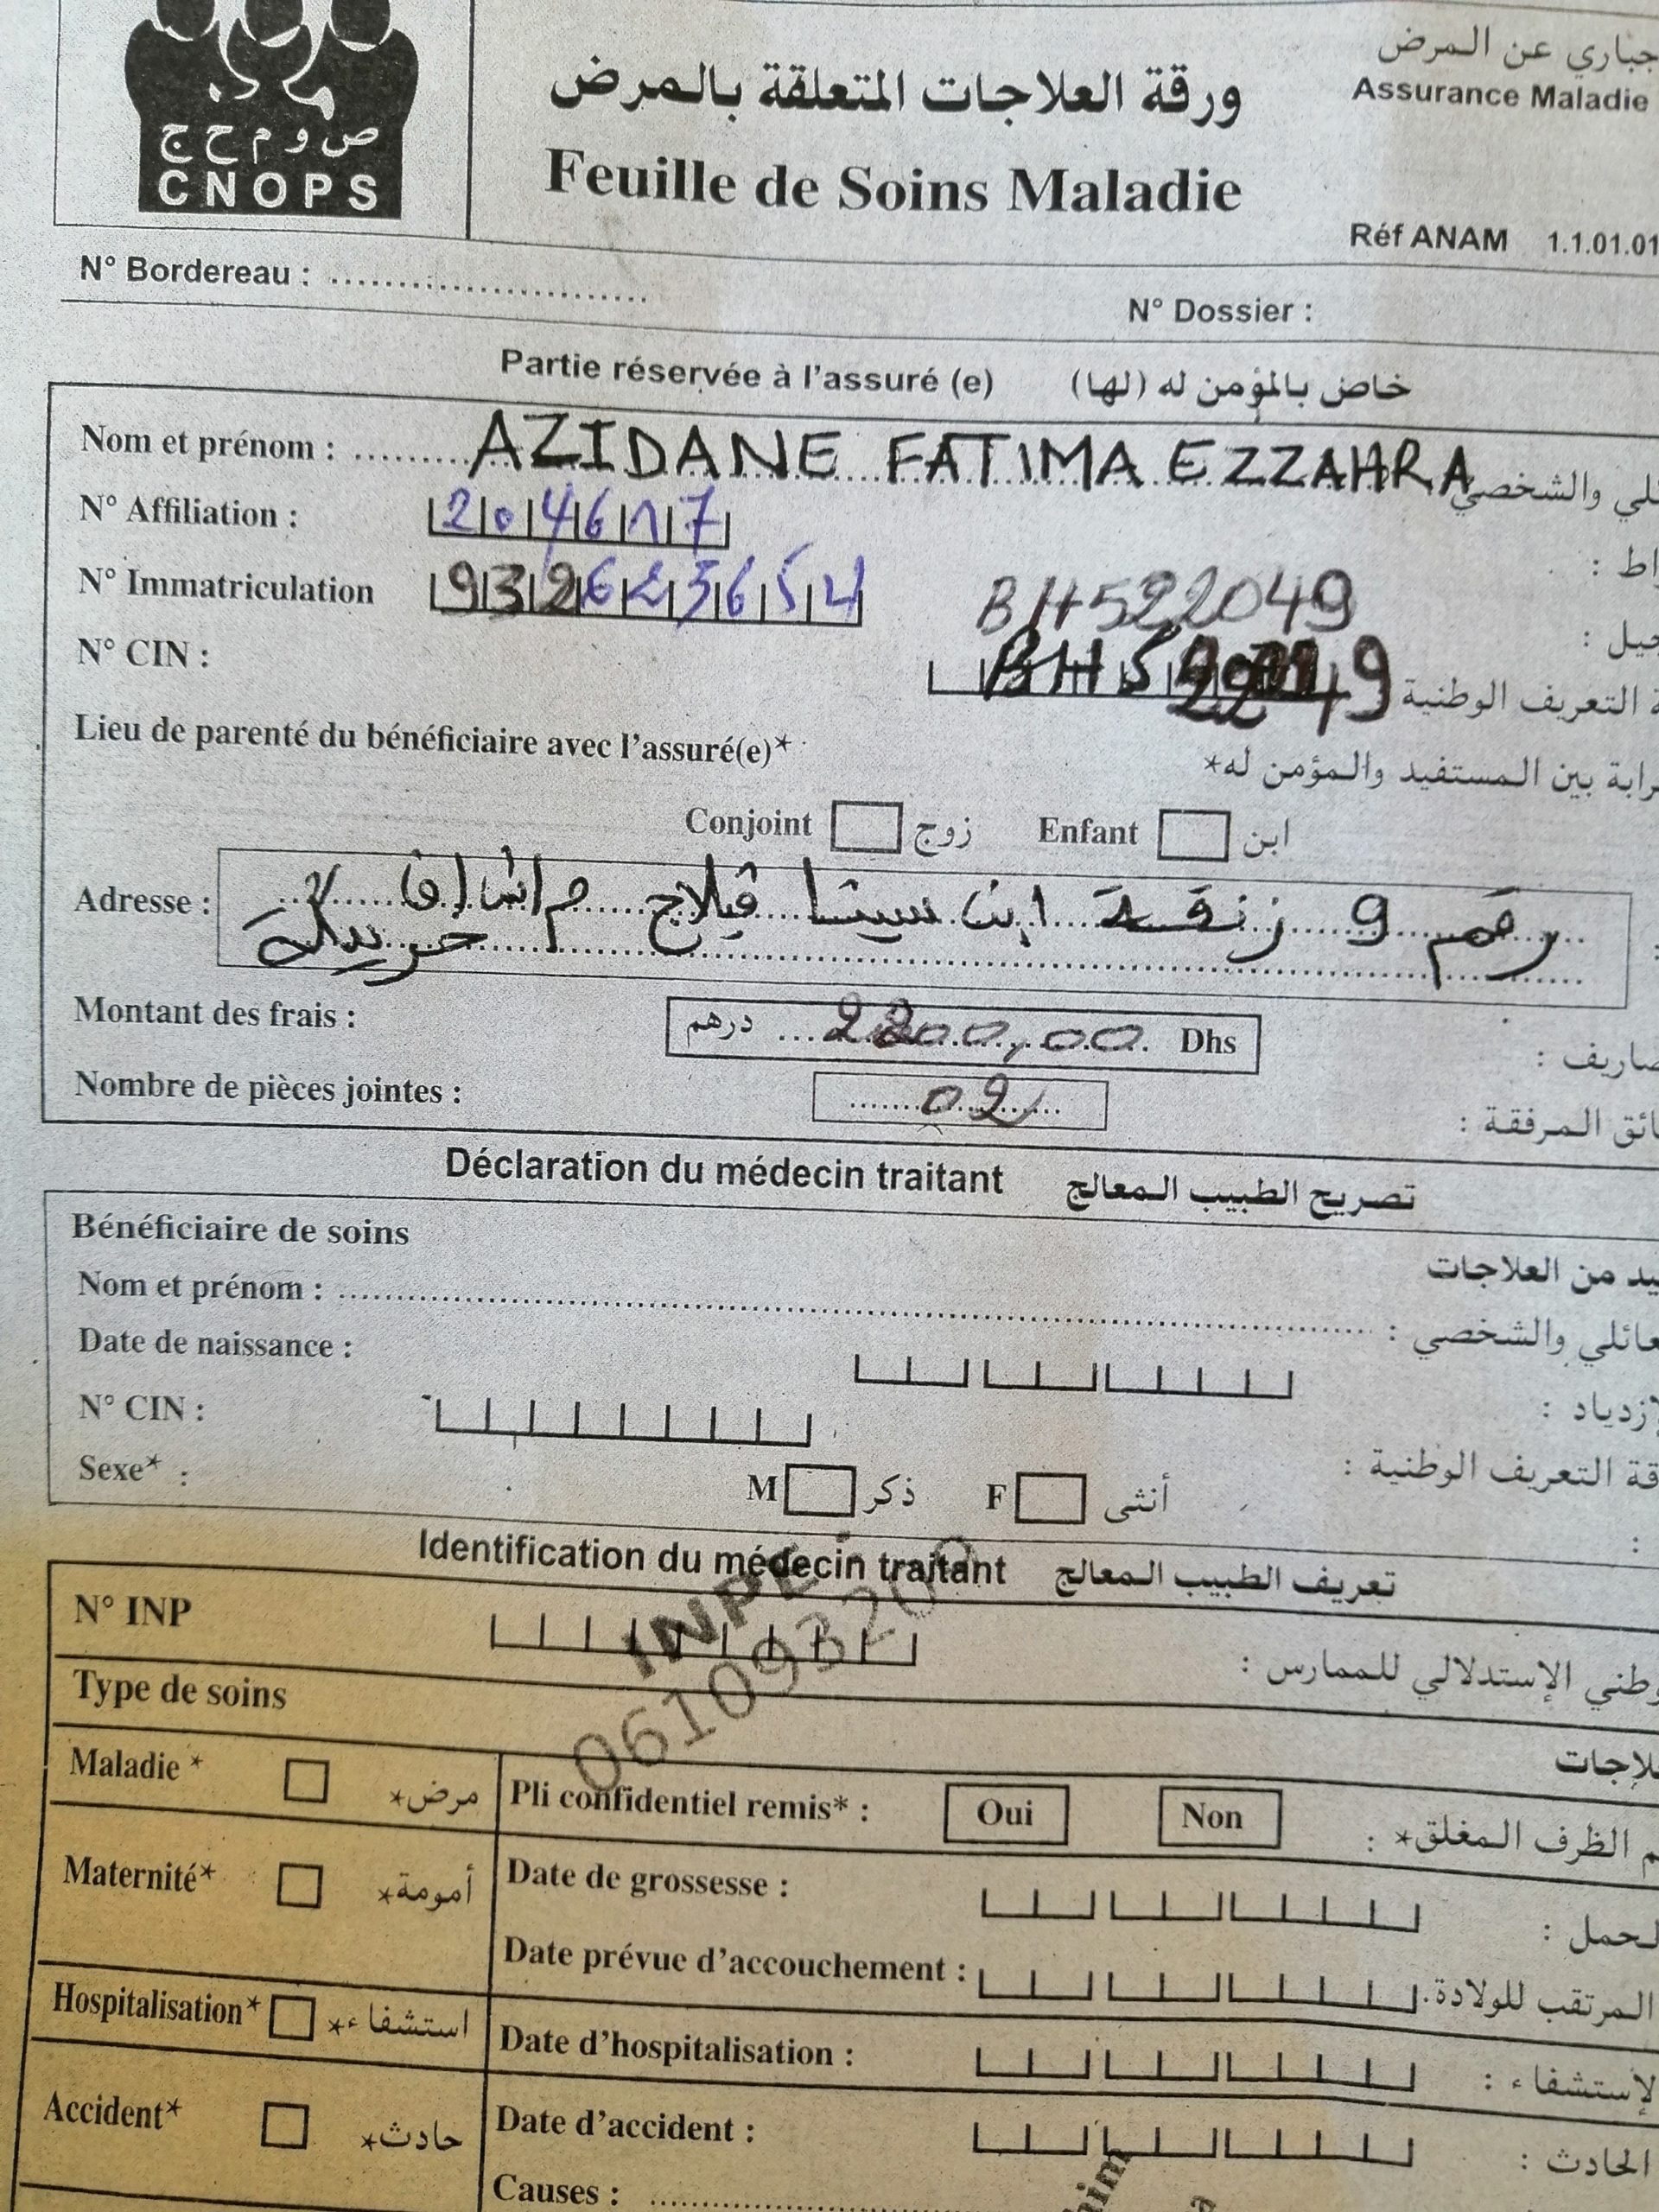 ص و م ح ج
CNOPS
ورقة العلاجات المتعلقة بالمرض
Feuille de Soins Maladie
جباري عن المرض
Assurance Maladie
Réf ANAM 1.1.01.01
N° Bordereau :
N° Dossier :
Partie réservée à l'assuré (e) خاص بالمؤمن له (لها)
Nom et prénom : AZIDANE FATIMA EZZAHRA والشخصي
N° Affiliation : 204617
N° Immatriculation 932625654 BH522049
N° CIN : BH5 49 التعريف الوطنية
Lieu de parenté du bénéficiaire avec l'assuré(e)*
بين المستفيد والمؤمن له*
Conjoint زوج Enfant ابن
Adresse : رقم 9 زنقة ابن سينا ڤيلاج
خريبكة
Montant des frais : درهم 2200,00 Dhs
Nombre de pièces jointes : 02 المرفقة :
Déclaration du médecin traitant تصريح الطبيب المعالج
Bénéficiaire de soins من العلاجات
Nom et prénom : والشخصي :
Date de naissance :
N° CIN : التعريف الوطنية :
Sexe* : M ذكر F أنثى
Identification du médecin traitant تعريف الطبيب المعالج
N° INP الإستدلالي للممارس :
INPE
Type de soins
Maladie * مرض* Pli confidentiel remis* : Oui Non الظرف المغلق* :
Maternité* أمومة* Date de grossesse :
Date prévue d'accouchement : المرتقب للولادة
Hospitalisation* استشفاء* Date d'hospitalisation : لإستشفاء :
Accident* حادث* Date d'accident : الحادث :
Causes :